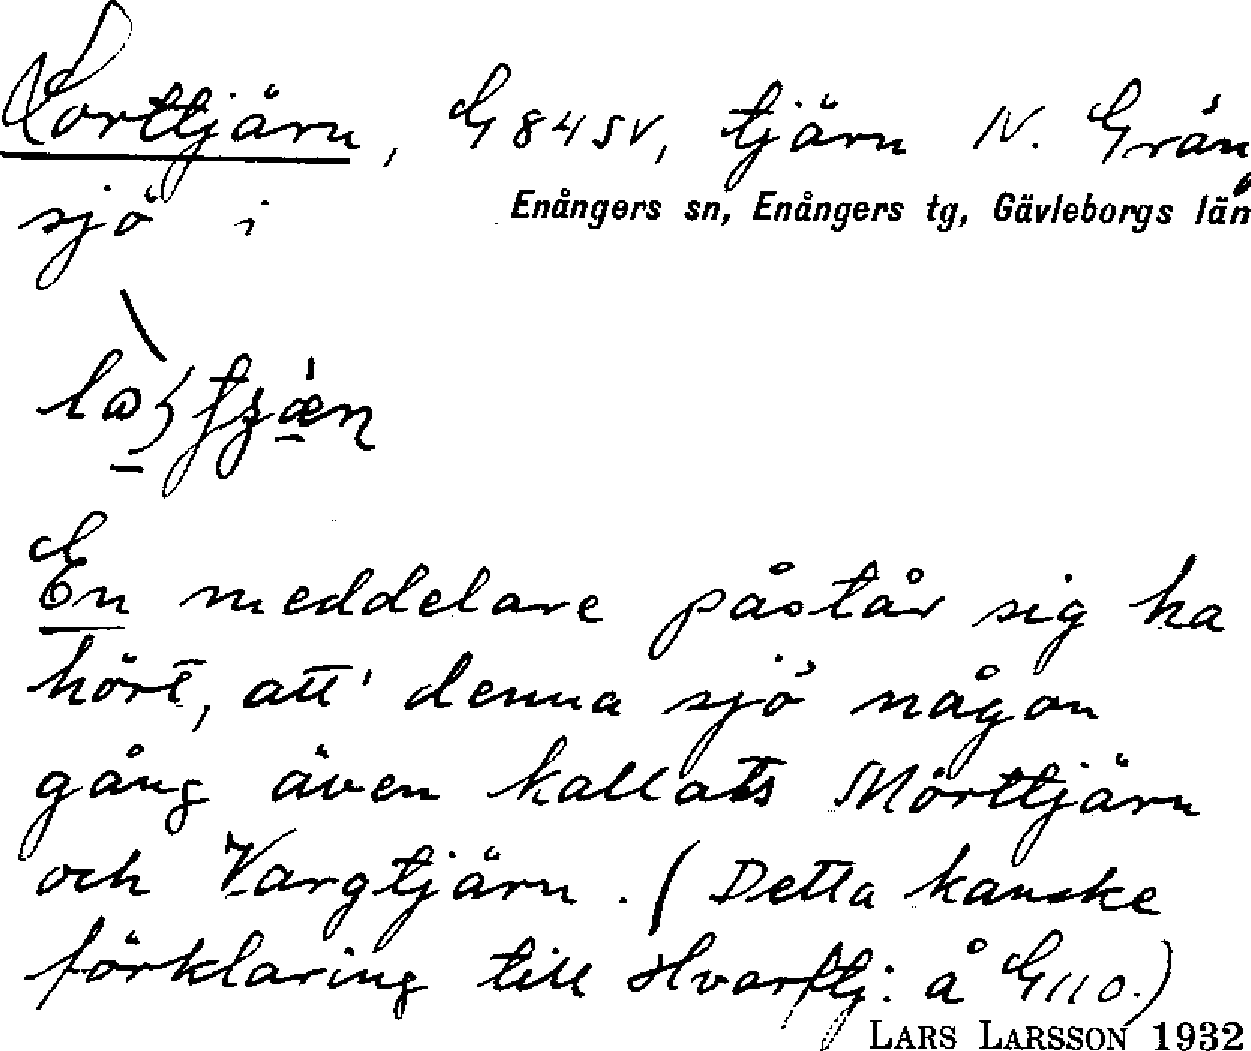 Lorttjärn, G 84 SV, tjärn N. Grån
sjö i Enångers sn, Enångers tg, Gävleborgs län
En meddelare påstår sig ha
hört, att denna sjö någon
gång även kallats Mörttjärn
och Vargtjärn. (Detta kanske
förklaring till Hvarftj: å G 110.)
LARS LARSSON 1932